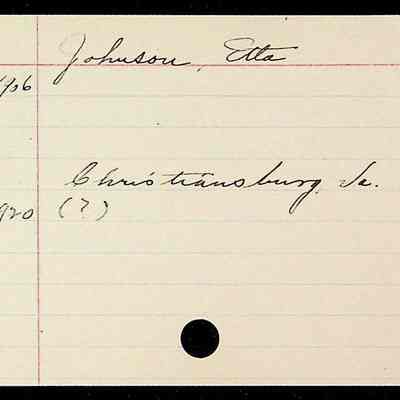 Johnson, Etta
Christiansburg, Va.
(?)